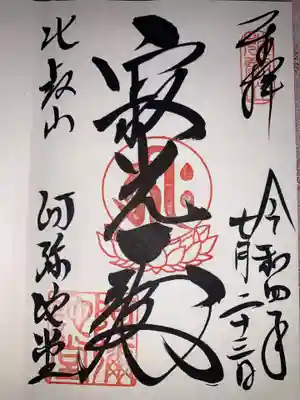 奉拝
令和四年
七月二十三日
寂光殿
比叡山
阿弥陀堂